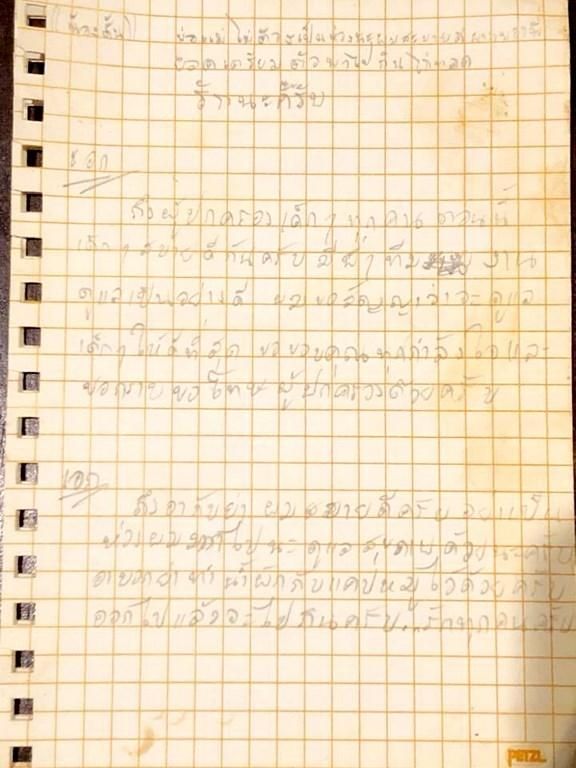 (น้องตั้น) พ่อแม่ไม่ต้องเป็นห่วงนะผมสบายดี
ยอดเตรียมตัวพาไปกินไก่ทอด
รักนะคร๊าบ
เอก
ถึงผู้ปกครองเด็กๆทุกคน ตอนนี้
เด็กๆสบายดีกันครับ มีพี่ๆทีม งาน
ดูแลเป็นอย่างดี ผมขอสัญญาว่าจะดูแล
เด็กๆให้ดีที่สุด ขอขอบคุณทุกกำลังใจและ
ขอกราบขอโทษผู้ปกครองด้วยครับ
เอก
ถึงอากับย่า ผมสบายดีครับ อย่าเป็น
ห่วงผมมากไปนะ ดูแลสุขภาพด้วยนะครับ
อาบอกย่าทำน้ำผักกับแคปหมูไว้ด้วยครับ
ออกไปแล้วจะไปกินครับ..รักทุกคนครับ
PETZL